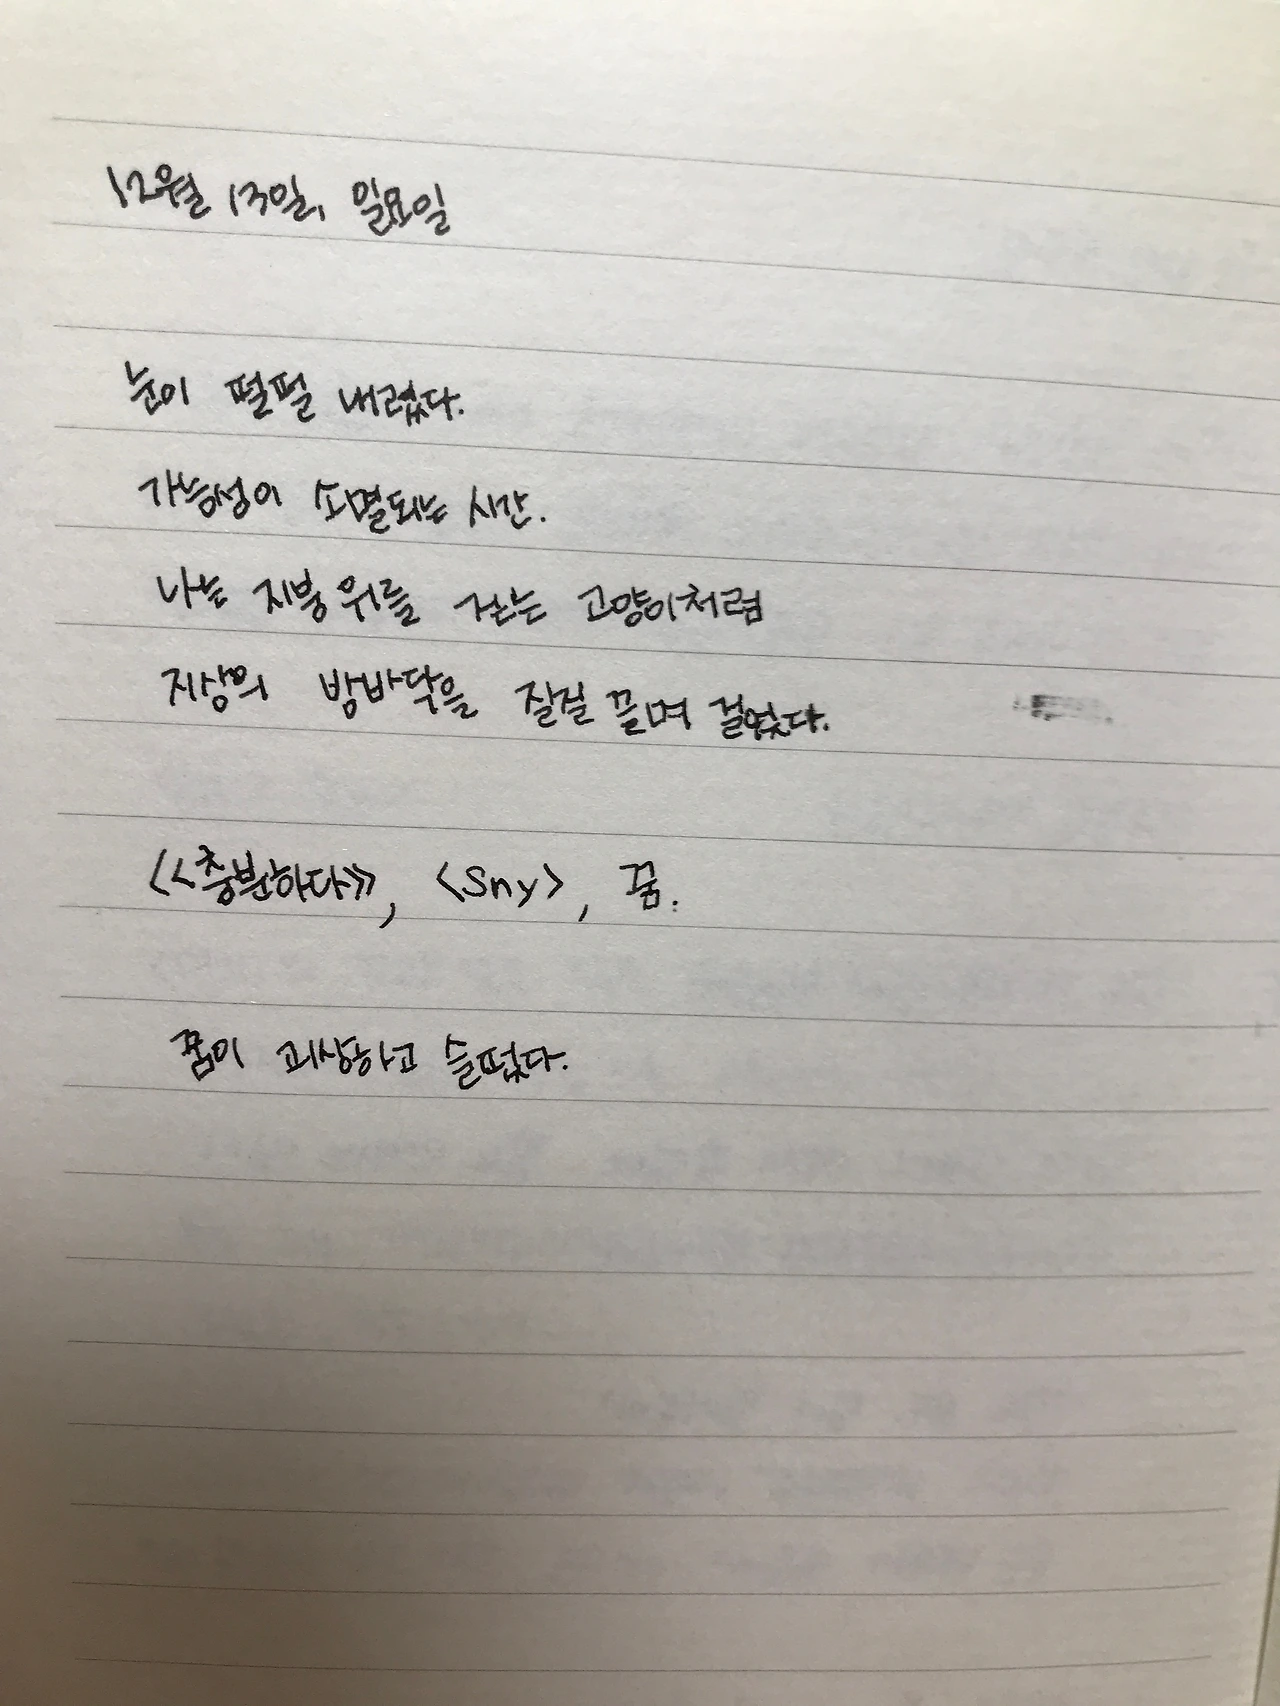 12월 13일, 일요일
눈이 펄펄 내렸다.
가능성이 소멸되는 시간.
나는 지붕 위를 걷는 고양이처럼
지상의 방바닥을 질질 끌며 걸었다.
<<충분하다>>, <Sny>, 꿈.
꿈이 괴상하고 슬펐다.